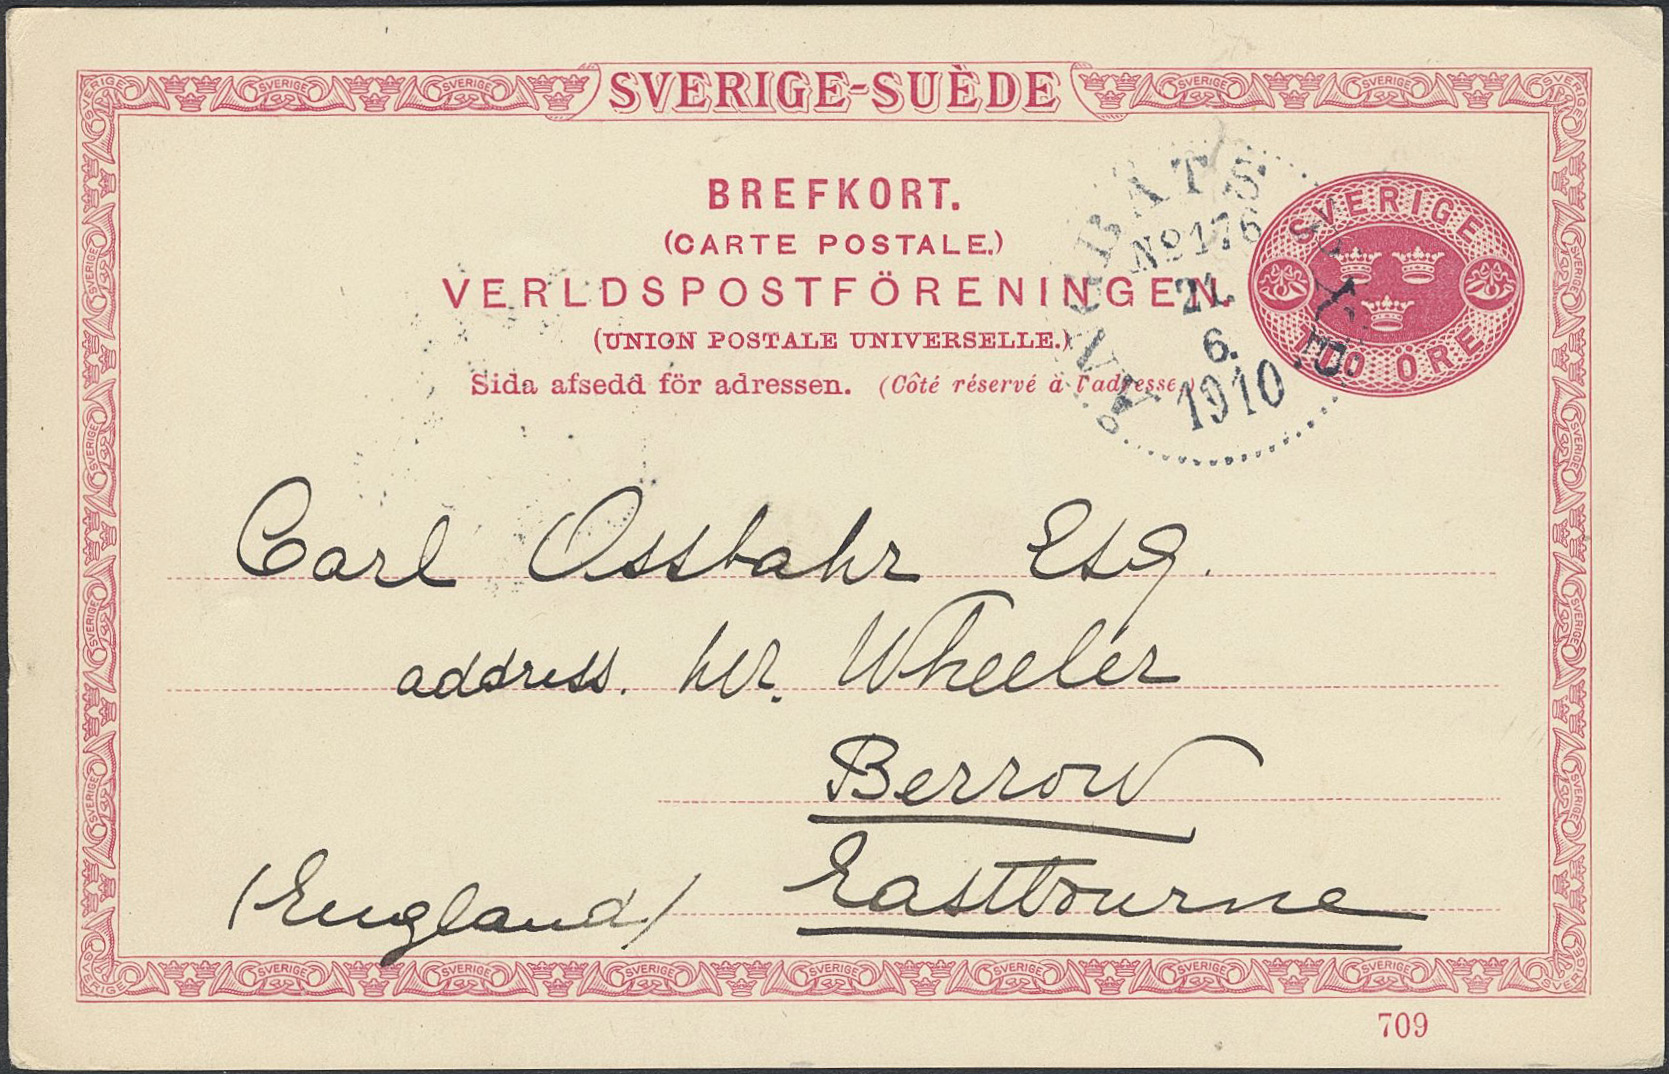 SVERIGE-SUÈDE
BREFKORT.
(CARTE POSTALE.)
VERLDSPOSTFÖRENINGEN.
(UNION POSTALE UNIVERSELLE.)
Sida afsedd för adressen. (Côté réservé à l'adresse.)
SVERIGE
10 ÖRE
ÅNGBÅTS
No 176
21.
6.
1910
Carl Ossbahr Esq.
address. Mr. Wheeler
Berrow
Eastbourne
(England)
709